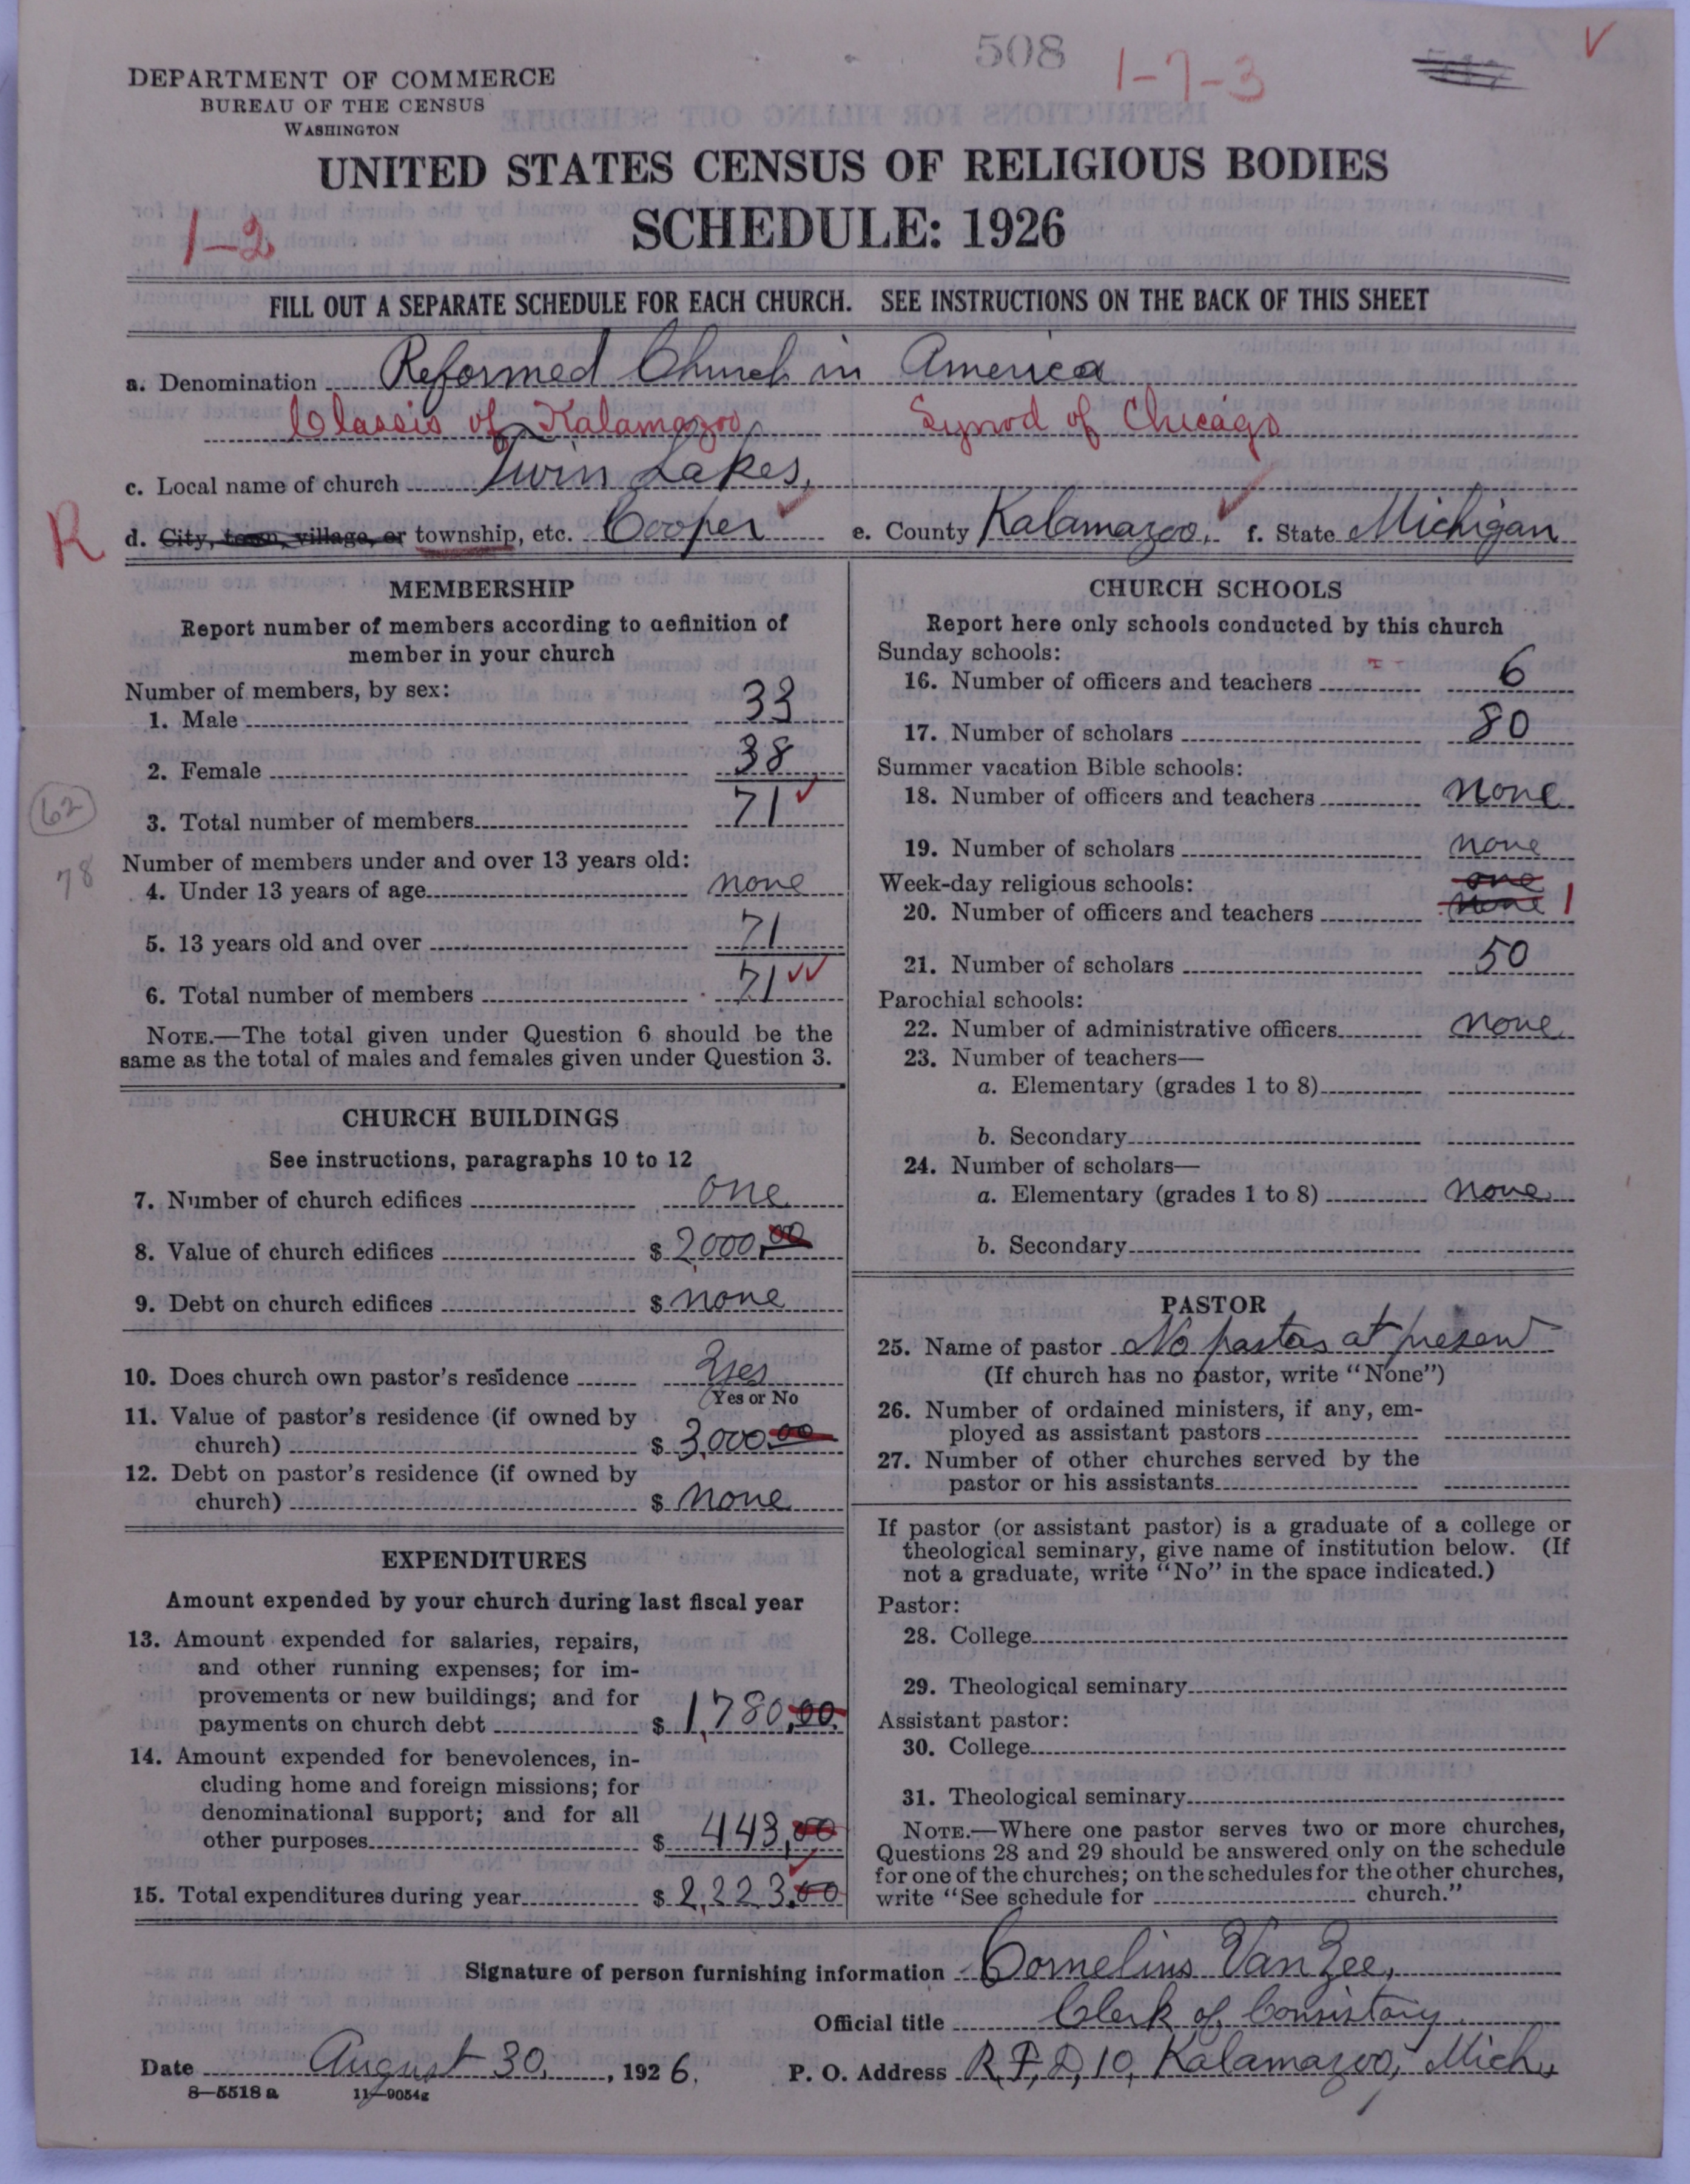 508
1-7-3
DEPARTMENT OF COMMERCE
BUREAU OF THE CENSUS
WASHINGTON
UNITED STATES CENSUS OF RELIGIOUS BODIES
SCHEDULE: 1926
1-2
FILL OUT A SEPARATE SCHEDULE FOR EACH CHURCH. SEE INSTRUCTIONS ON THE BACK OF THIS SHEET
a. Denomination Reformed Church in America
Classis of Kalamazoo, Synod of Chicago
c. Local name of church Twin Lakes,
R
d. City, town, village, or township, etc. Cooper e. County Kalamazoo, f. State Michigan
MEMBERSHIP
Report number of members according to definition of
member in your church
Number of members, by sex:
1. Male 33
2. Female 38
62
3. Total number of members 71
78
Number of members under and over 13 years old:
4. Under 13 years of age none
5. 13 years old and over 71
6. Total number of members 71
NOTE.—The total given under Question 6 should be the
same as the total of males and females given under Question 3.
CHURCH BUILDINGS
See instructions, paragraphs 10 to 12
7. Number of church edifices one
8. Value of church edifices $ 2,000.00
9. Debt on church edifices $ none
10. Does church own pastor's residence Yes
Yes or No
11. Value of pastor's residence (if owned by
church) $ 3,000.00
12. Debt on pastor's residence (if owned by
church) $ none
EXPENDITURES
Amount expended by your church during last fiscal year
13. Amount expended for salaries, repairs,
and other running expenses; for im-
provements or new buildings; and for
payments on church debt $ 1,780.00
14. Amount expended for benevolences, in-
cluding home and foreign missions; for
denominational support; and for all
other purposes $ 443.00
15. Total expenditures during year $ 2,223.00
CHURCH SCHOOLS
Report here only schools conducted by this church
Sunday schools:
16. Number of officers and teachers 6
17. Number of scholars 80
Summer vacation Bible schools:
18. Number of officers and teachers none
19. Number of scholars none
Week-day religious schools: one
20. Number of officers and teachers none 1
21. Number of scholars 50
Parochial schools:
22. Number of administrative officers none
23. Number of teachers—
a. Elementary (grades 1 to 8)
b. Secondary
24. Number of scholars—
a. Elementary (grades 1 to 8) none
b. Secondary
PASTOR
25. Name of pastor No pastor at present
(If church has no pastor, write "None")
26. Number of ordained ministers, if any, em-
ployed as assistant pastors
27. Number of other churches served by the
pastor or his assistants
If pastor (or assistant pastor) is a graduate of a college or
theological seminary, give name of institution below. (If
not a graduate, write "No" in the space indicated.)
Pastor:
28. College
29. Theological seminary
Assistant pastor:
30. College
31. Theological seminary
NOTE.—Where one pastor serves two or more churches,
Questions 28 and 29 should be answered only on the schedule
for one of the churches; on the schedules for the other churches,
write "See schedule for church."
Signature of person furnishing information Cornelius Van Zee,
Official title Clerk of Consistory
Date August 30, 1926. P. O. Address R.F.D, 10, Kalamazoo, Mich,
8—5518 a 11—9054g